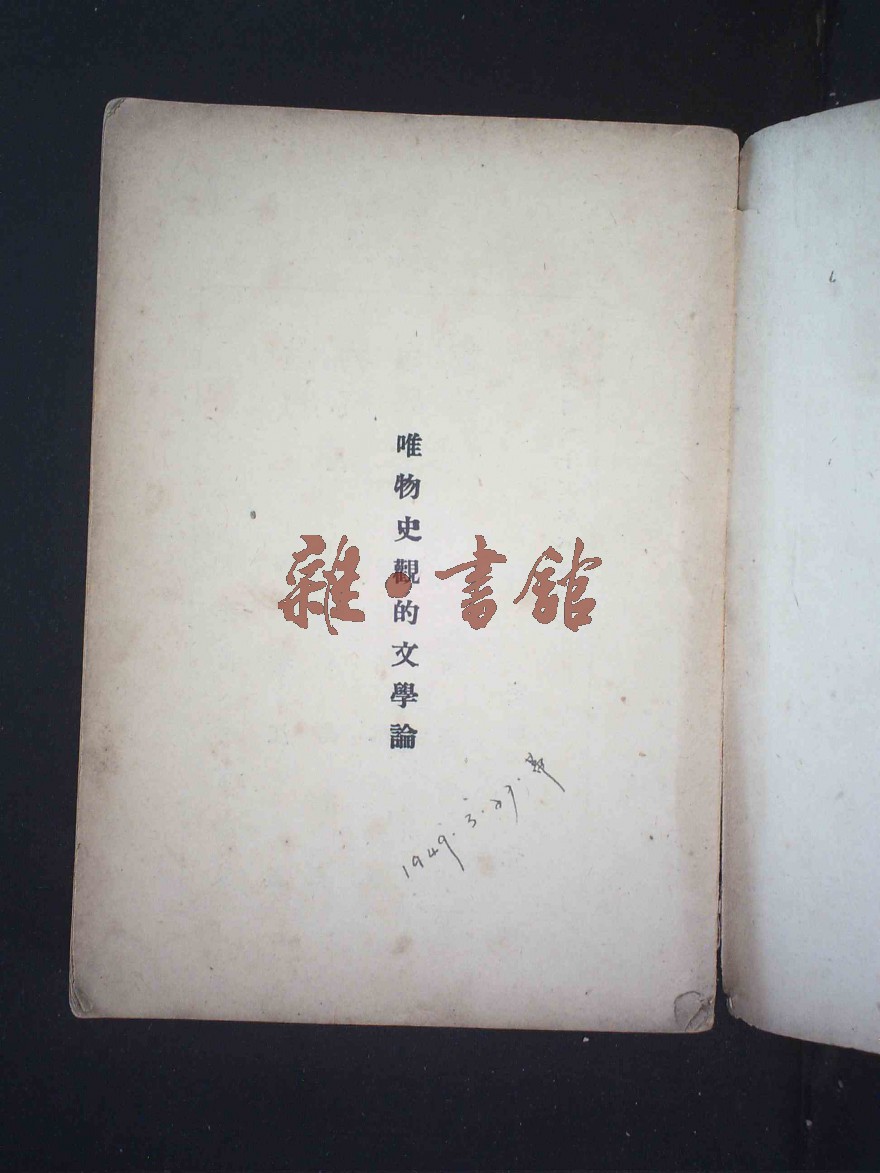 唯物史觀的文學論
雜·書館
1949.3.27.